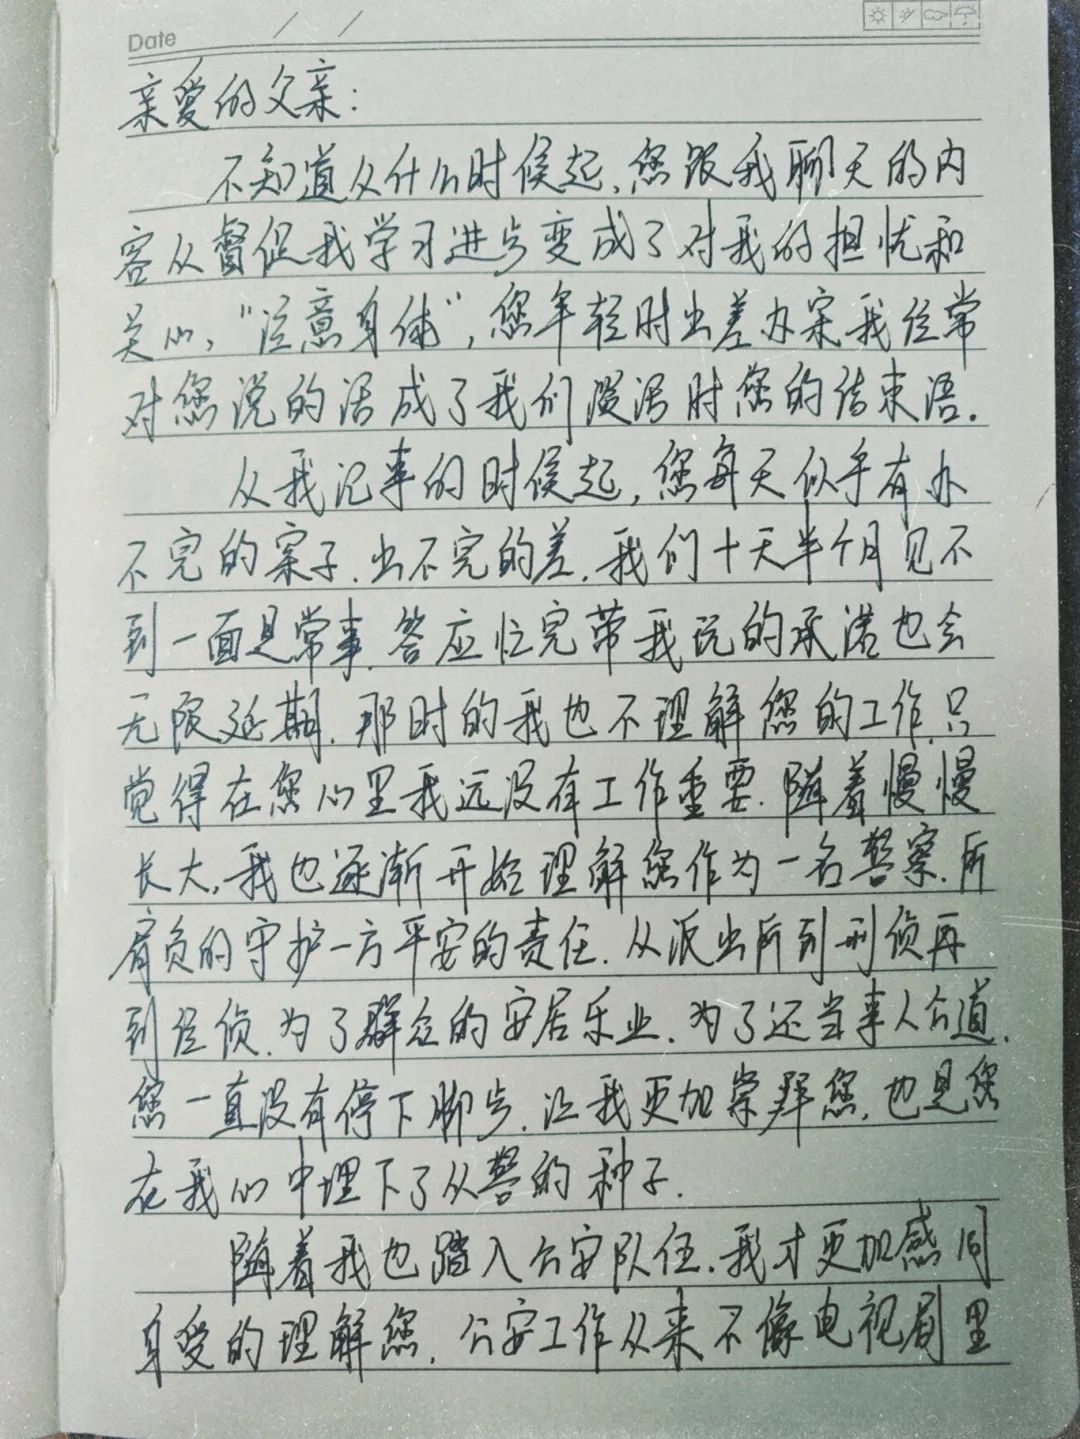 Date / /
亲爱的父亲：
不知道从什么时候起，您跟我聊天的内
容从督促我学习进步变成了对我的担忧和
关心，“注意身体”，您年轻时出差办案我经常
对您说的话成了我们谈话时您的结束语.
从我记事的时候起，您每天似乎有办
不完的案子，出不完的差，我们十天半个月见不
到一面是常事，答应忙完带我玩的承诺也会
无限延期，那时的我也不理解您的工作，只
觉得在您心里我远没有工作重要.随着慢慢
长大，我也逐渐开始理解您作为一名警察，所
肩负的守护一方平安的责任.从派出所到刑侦再
到经侦，为了群众的安居乐业，为了还当事人公道，
您一直没有停下脚步，让我更加崇拜您，也是您
在我心中埋下了从警的种子.
随着我也踏入公安队伍，我才更加感同
身受的理解您，公安工作从来不像电视剧里